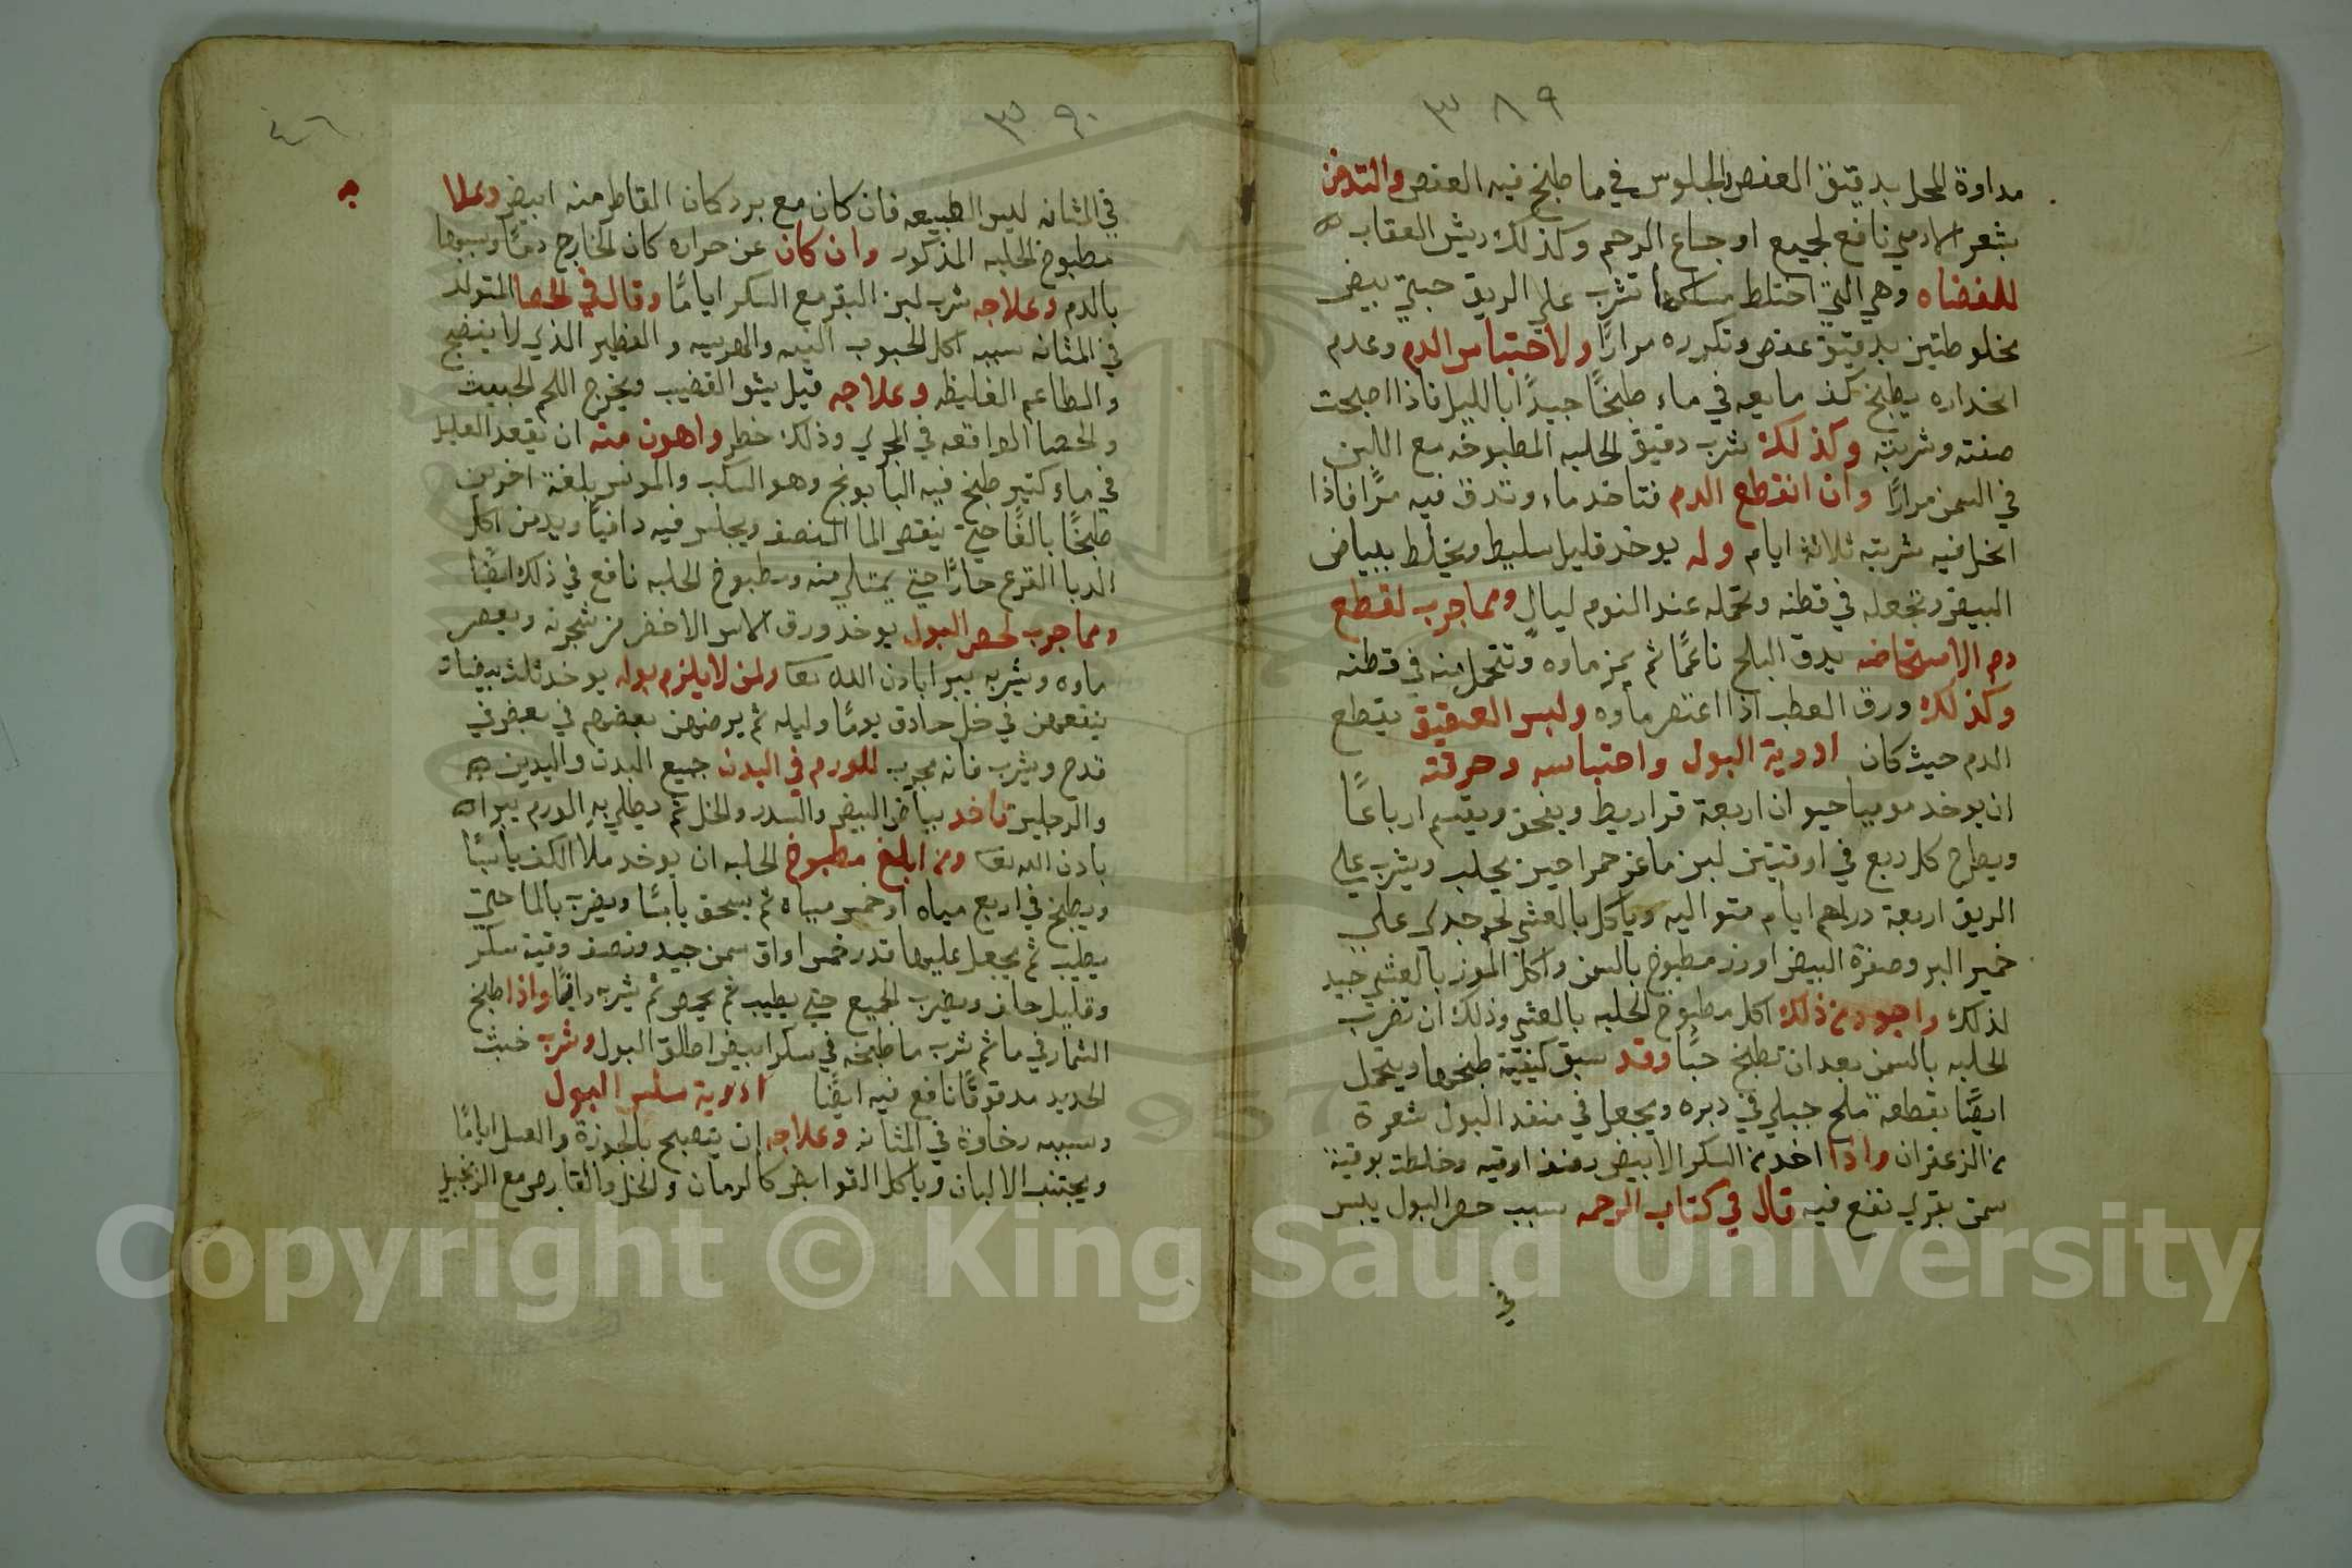 ٣٨٩
مداوة المحل بدقيق العفص والجلوس في ما طبخ فيه العفص والتدخن
بشعر الادمي نافع لجميع اوجاع الرحم وكذلك ريش العقاب
للمفضاه وهي التي اختلط مسلكها تشرب علي الريق حبتي بيض
مخلوطتين بدقيق عفص وتكرره مرارًا ولاحتباس الدم وعدم
انحداره يطبخ كف مايعه في ماء طبخًا جيدًا بالليل فاذا اصبحت
صفته وشربته وكذلك شرب دقيق الحلبه المطبوخه مع اللبن
في السمن مرارًا وان انقطع الدم فتاخد ماء وتدق فيه مرًا فاذا
انحل فيه شربته ثلاثة ايام وله يوخد قليل سليط ويخلط ببياض
البيض وتجعله في قطنه وتحمله عند النوم ليالٍ ومما جرب لقطع
دم الاستحاضه يدق البلح ناعمًا ثم يمز ماوه وتتحمل منه في قطنه
وكذلك ورق العطب اذا اعتصر ماوه ولبس العقيق يقطع
الدم حيث كان ادوية البول واحتباسه وحرقته
ان يوخد موميا حيوان اربعة قراريط ويسحق ويقسم ارباعًا
ويطرح كل ربع في اوقيتين لبن ماعز حمرا حين يحلب ويشرب علي
الريق اربعة دراهم ايام متواليه وياكل بالعشي لحم جدي علي
خمير البر وصفرة البيض اورز مطبوخ بالسمن واكل الموز بالعشي جيد
لذلك واجود من ذلك اكل مطبوخ الحلبه بالعشي وذلك ان تضرب
الحلبه بالسمن بعد ان تطبخ حبًا وقد سبق كيفية طبخها ويتحمل
ايضًا بقطعة ملح جبلي في دبره ويجعل في منفد البول شعرة
من الزعفران واذا اخد من السكر الابيض نصف اوقيه وخلطته بوقية
سمن بقري نفع فيه قال في كتاب الرحمه سبب حصر البول يبس
في
٣٩٠
٤٦
في المثانه ليبس الطبيعه فان كان مع برد كان القاطر منه ابيض وعلا
جه
مطبوخ الحلبه المذكور وان كان عن حراره كان الخارج دمًا وسببها
بالدم وعلاجه شرب لبن البقر مع السكر ايامًا وقال في الحصا المتولد
في المثانه سببه اكل الحبوب النيه والهريسه والفطير الذي لا ينضج
والمطاعم الغليظه وعلاجه قيل يشق القضيب ويخرج اللحم الخبيث
والحصا الواقعه في المجري وذلك خطر واهون منه ان يقعد العليل
في ماء كتير طبخ فيه البابونج وهو السكب والمونس بلغة اخرين
طبخًا بالغًا حتي ينقص الما النصف ويجلس فيه دافيًا ويدمن اكل
الدبا القرع حارًا حتي يمتلي منه ومطبوخ الحلبه نافع في ذلك ايضًا
ومما جرب لحصر البول يوخد ورق الاس الاخضر من شجرته ويعصر
ماوه ويشربه يبرا باذن الله تعا ولمن لا يلزم بوله يوخد ثلث بيضات
ينقعهن في خل حادق يومًا وليله ثم يرضهن بعضهم في بعض في
قدح ويشرب فانه مجرب للورم في البدن جميع البدن واليدين
والرجلين تاخد بياض البيض والسدر والخل ثم يطلي به الورم يبرا
باذن الله تعا ومن ابلغ مطبوخ الحلبه ان يوخد ملا الكف يابسًا
ويطبخ في اربع مياه او خمس مياه ثم يسحق يابسًا ويضرب بالما حتي
يطيب ثم يجعل عليها قدر خمس اواق سمن جيد ونصف وقية سكر
وقليل حلف ويضرب الجميع حتي يطيب ثم يحمص ثم يشرب دافيًا واذا طبخ
الشمار في ما ثم شرب ما طبخه في سكر ابيض اطلق البول وشرب خبث
الحديد مدقوقًا نافع فيه ايضًا ادوية سلس البول
وسببه رخاوة في المثانه وعلاجه ان يتصبح بالجوزة والعسل ايامًا
ويجتنب الالبان وياكل القوابض كالرمان والخل والقارص مع الزنجبيل
Copyright © King Saud University
1957